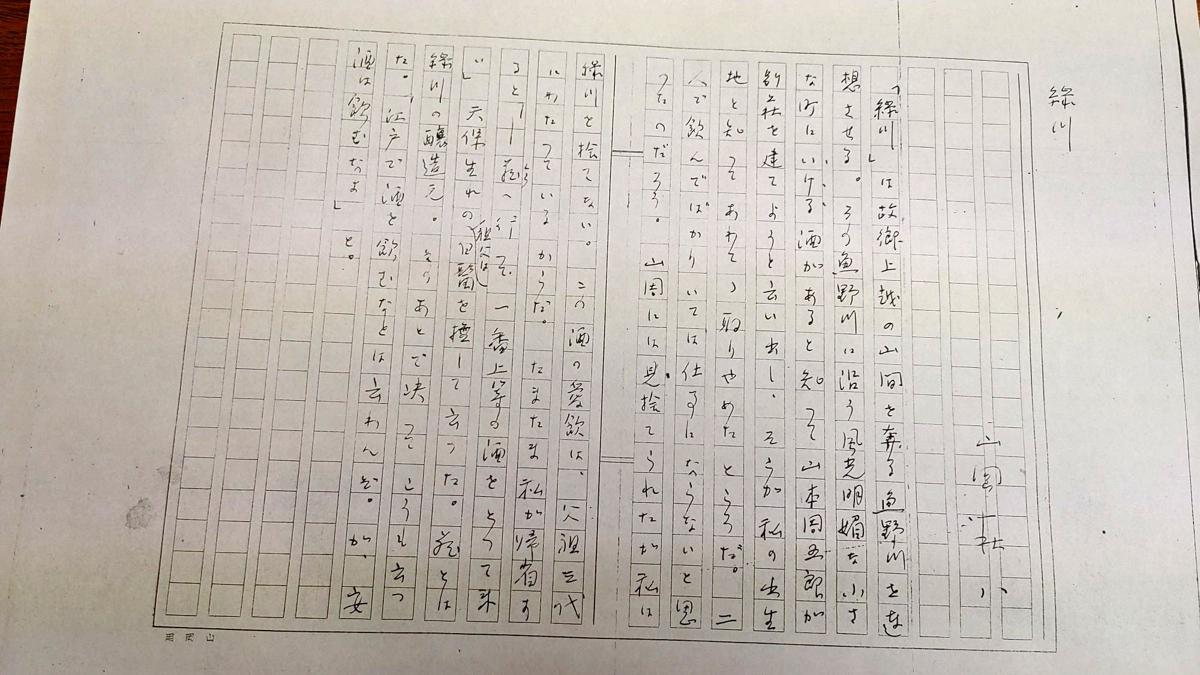 緑川
「緑川」は故郷上越の山間を奔る魚野川を連
想させる。その魚野川に沿う風光明媚な小さ
な町にいける酒があると知って山本周五郎が
別荘を建てようと言い出し、そこが私の出生
地と知ってあわてゝ取りやめたとこうだ。二
人で飲んでばかりいては仕事にならないと思
ったのだろう。山周には見捨てられたが私は
緑川を捨てない。この酒の愛飲は、父祖三代
にわたっているからだ。たまたま私が帰省す
ると「一蔵へ行って一番上等の酒をとって来
い」天保生れの祖父は白髯を撫して言った。蔵とは
緑川の醸造元。そのあとで決ってこうも云っ
た。「江戸で酒を飲むなとは言わんぞ。が、安
酒は飲むなよ」と。